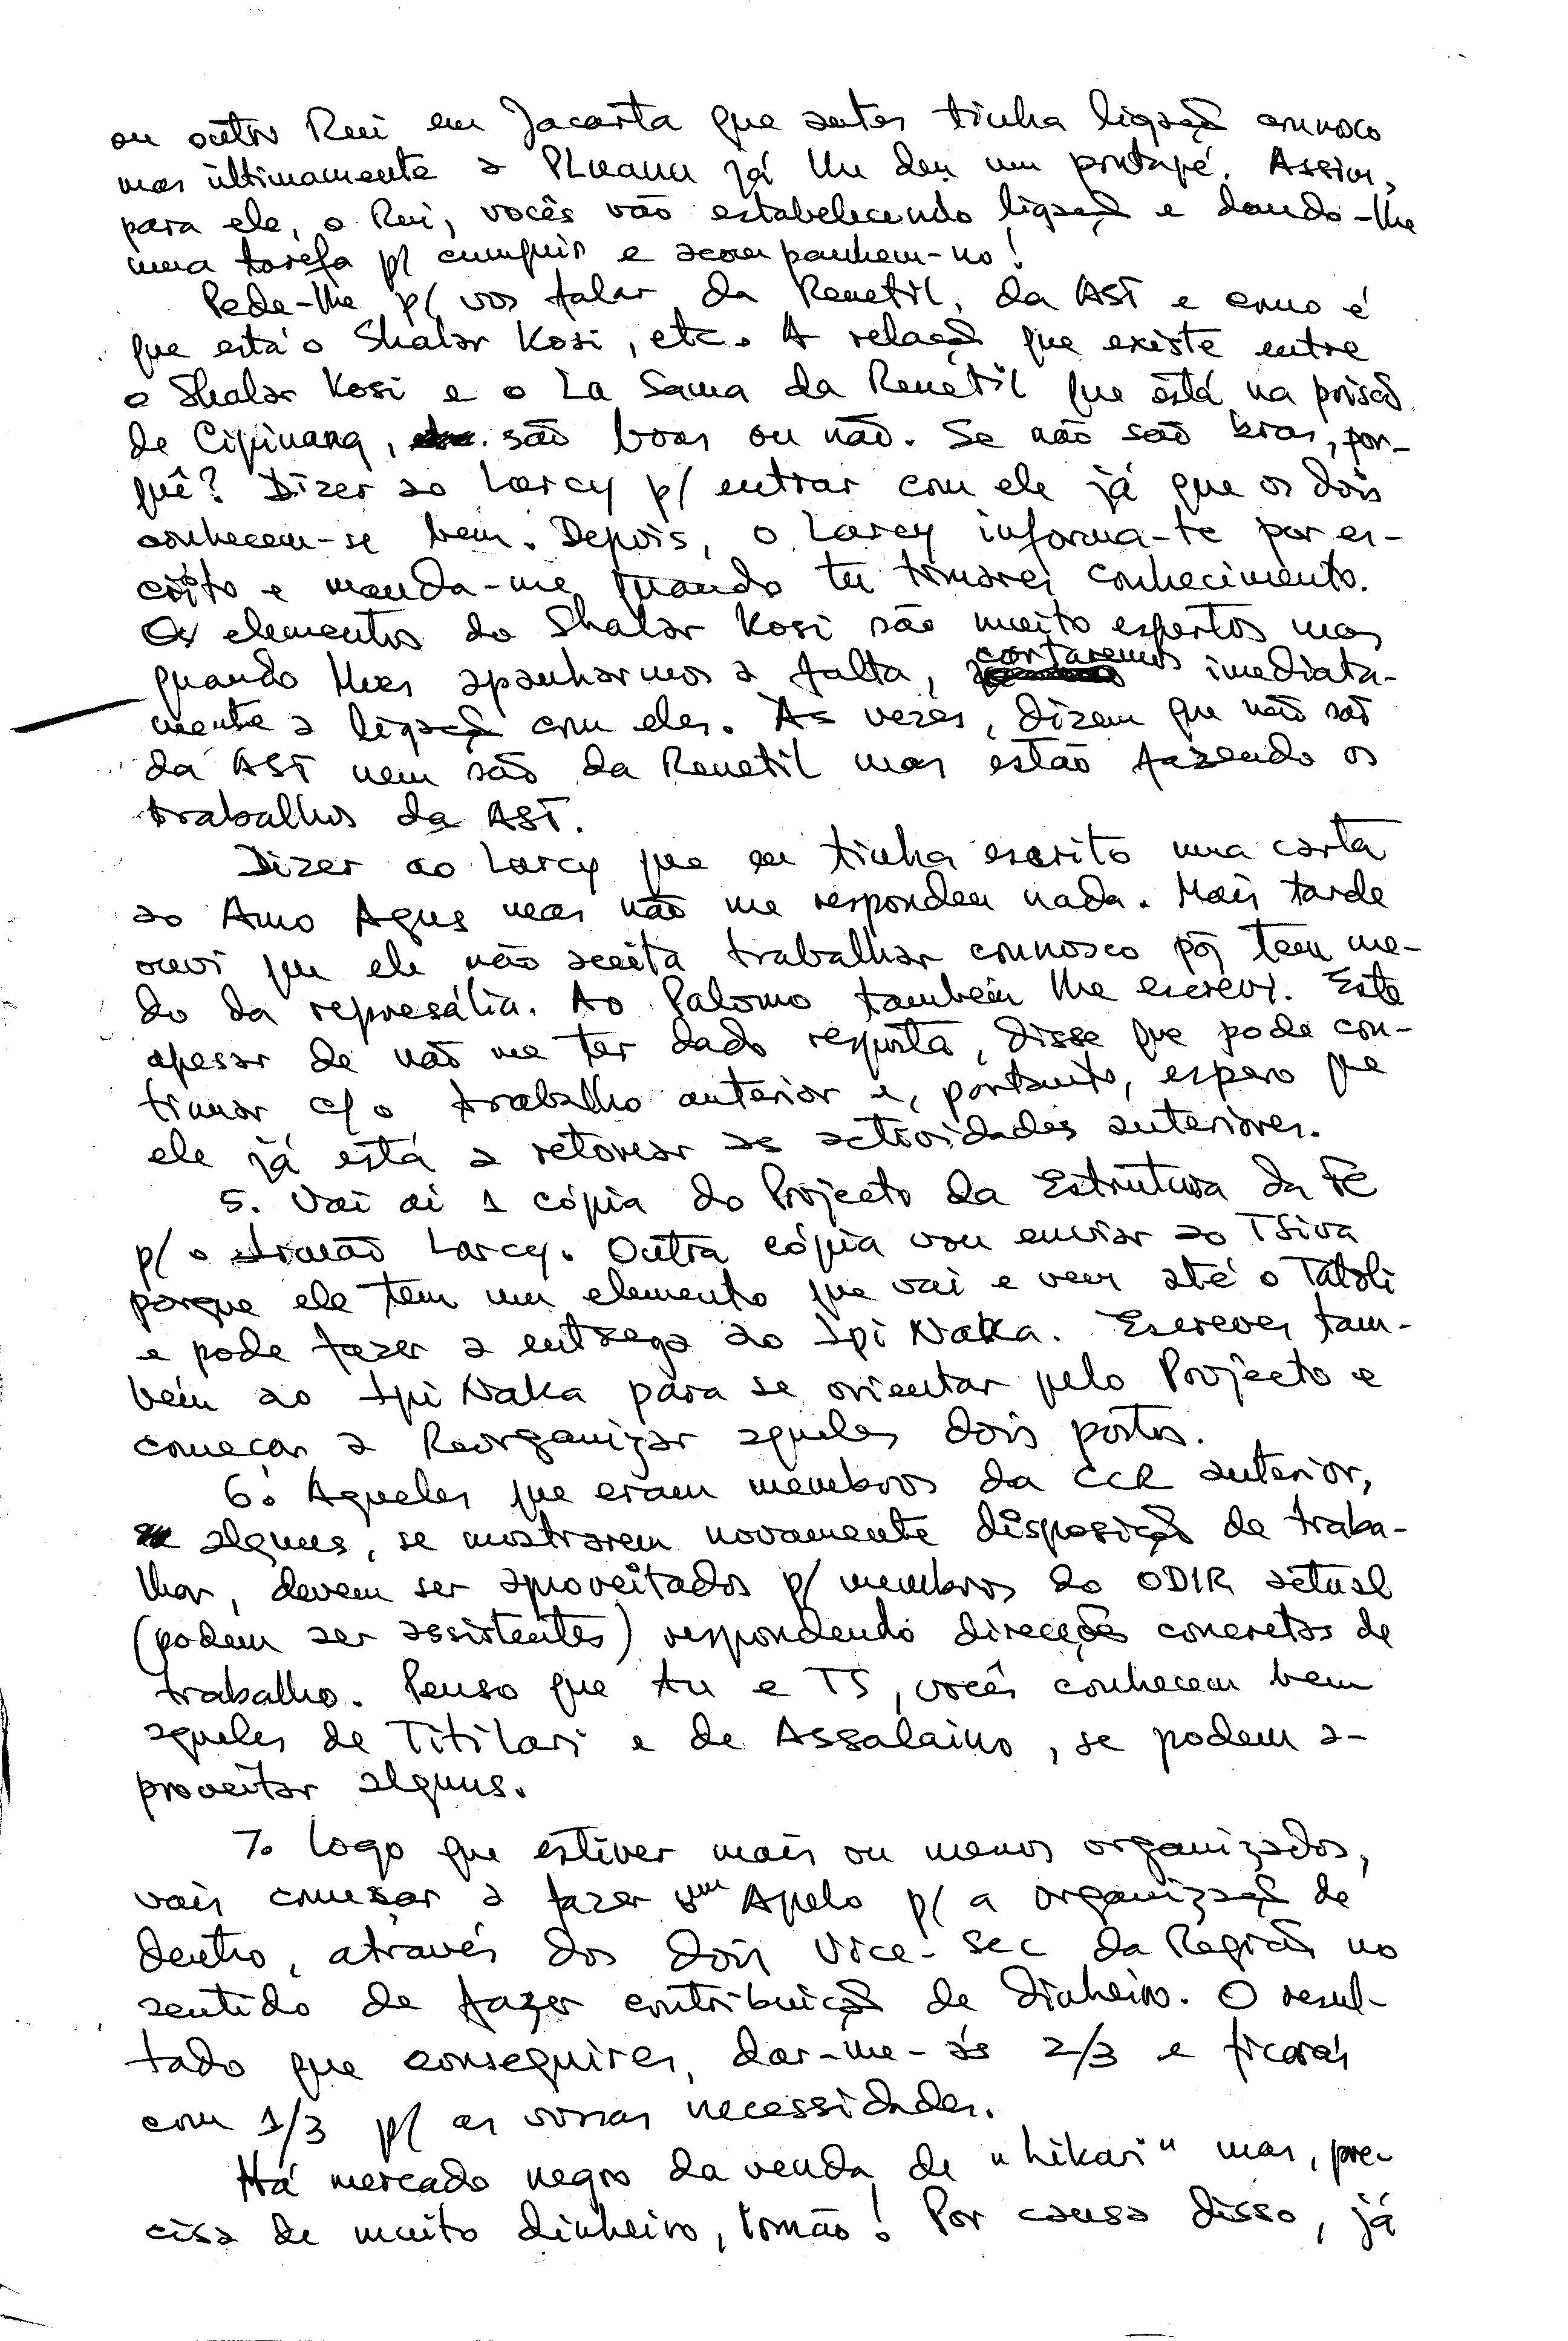 ou outro Rui em Jacarta que antes tinha ligação connosco
mas ùltimamente a PLuanu já lhe deu um pontapé. Assim,
para ele, o Rui, vocês vão estabelecendo ligação e dando-lhe
uma tarefa p/ cumprir e acompanhem-no!
Pede-lhe p/ vos falar da Renetil, da AST e como é
que está o Shalar Kosi, etc. A relação que existe entre
o Shalar Kosi e o La Sama da Renetil que está na prisão
de Cipinang, são boas ou não. Se não são boas, por-
quê? Dizer ao Larcy p/ entrar com ele já que os dois
conhecem-se bem. Depois, o Larcy informa-te por es-
crito e manda-me quando tu tomares conhecimento.
Os elementos do Shalar Kosi são muito espertos mas
quando lhes apanharmos a falta, cortaremos imediata-
mente a ligação com eles. Às vezes, dizem que não são
da AST nem são da Renetil mas estão fazendo os
trabalhos da AST.
Dizer ao Larcy que eu tinha escrito uma carta
ao Amo Agus mas não me respondeu nada. Mais tarde
ouvi que ele não aceita trabalhar connosco pois tem me-
do da represália. Ao Palomo também lhe escrevi. Este
apesar de não me ter dado resposta, disse que pode con-
tinuar c/ o trabalho anterior e, portanto, espero que
ele já está a retomar as actividades anteriores.
5. Vai aí 1 cópia do Projecto da Estrutura da FC
p/ o Irmão Larcy. Outra cópia vou enviar ao TSiva
porque ele tem um elemento que vai e vem até o Tatoli
e pode fazer a entrega ao Ipi Naka. Escrever tam-
bém ao Ipi Naka para se orientar pelo Projecto e
começar a Reorganizar aqueles dois postos.
6. Aqueles que eram membros da CCR anterior,
alguns, se mostrarem novamente disposição de traba-
lhar, devem ser aproveitados p/ membros do ODIR actual
(podem ser assistentes) respondendo direcções concretas de
trabalho. Penso que tu e TS, vocês conhecem bem
aqueles de Titilari e de Assalaino, se podem a-
proveitar alguns.
7. Logo que estiver mais ou menos organizados,
vais começar a fazer um Apelo p/ a organização de
dentro, através dos dois Vice-Sec da Região no
sentido de fazer contribuição de dinheiro. O resul-
tado que conseguires, dar-me-ás 2/3 e ficarás
com 1/3 p/ as vossas necessidades.
Há mercado negro da venda de "hikari" mas, pre-
cisa de muito dinheiro, Irmão! Por causa disso, já